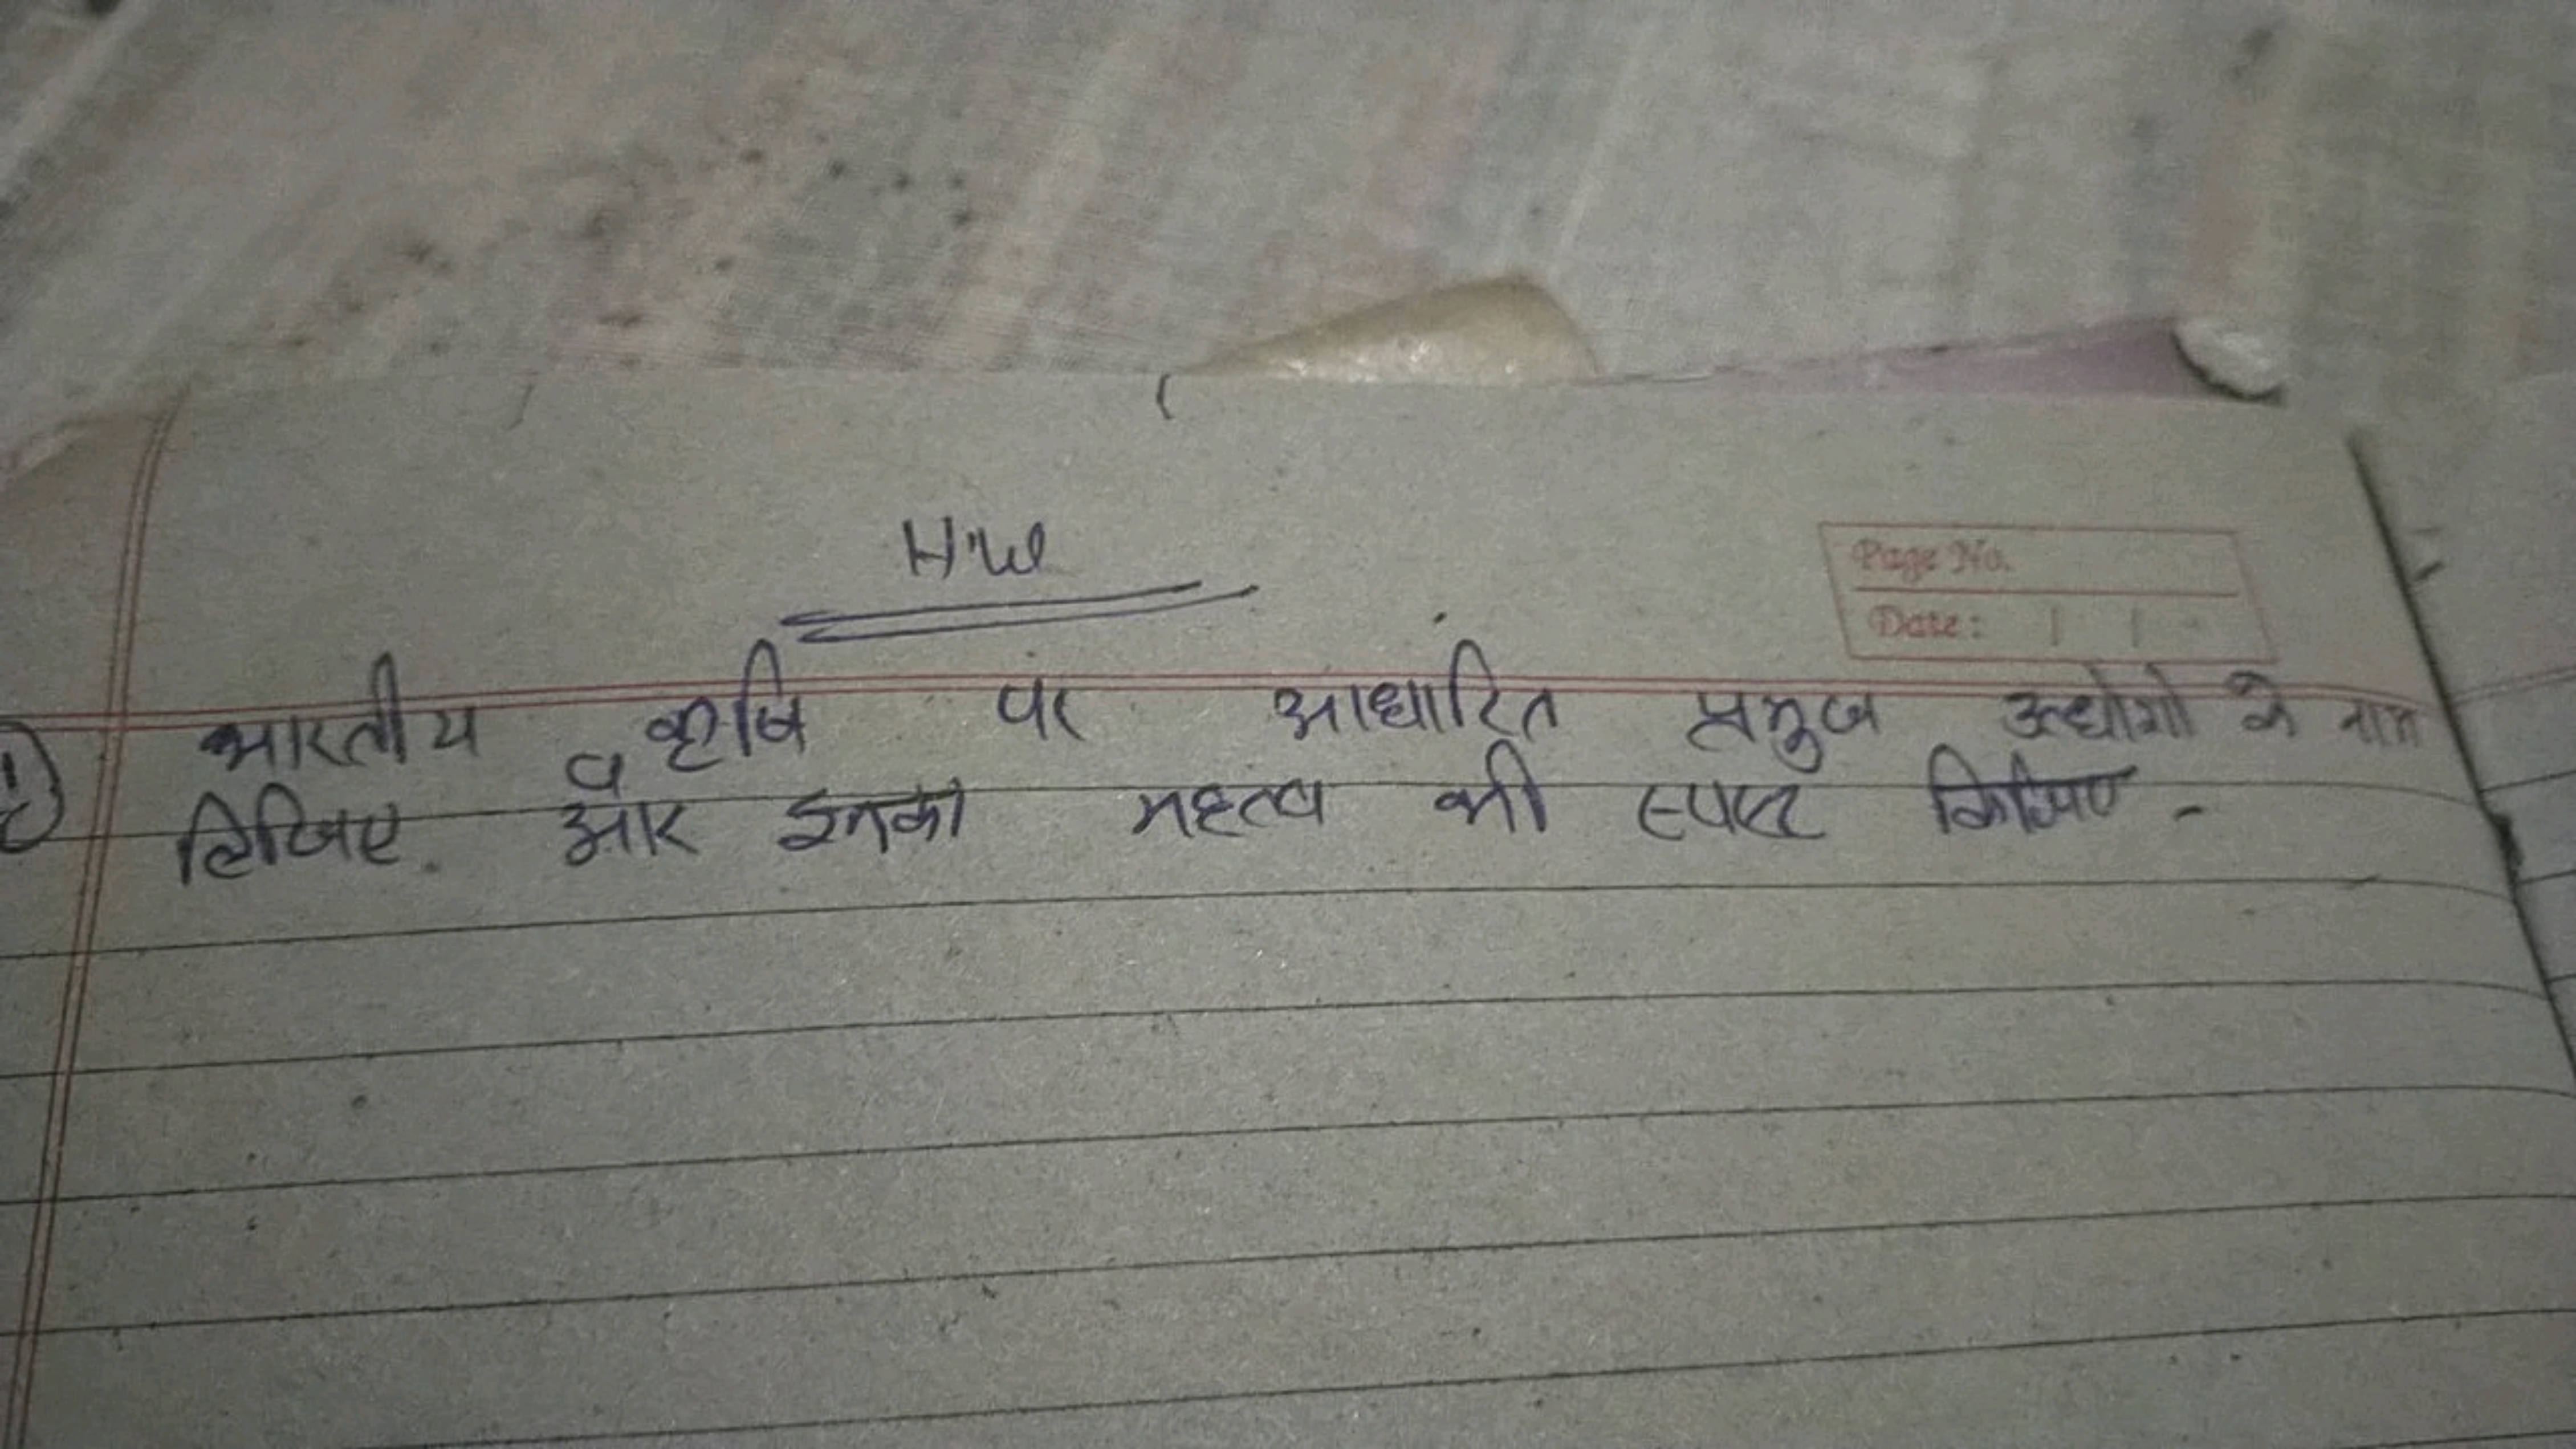 H.W
Page No.
Date:
1) भारतीय कृषि पर आधारित प्रमुख उद्योगो के नाम
व
लिखिए. और इनका महत्व भी स्पष्ट किजिए -